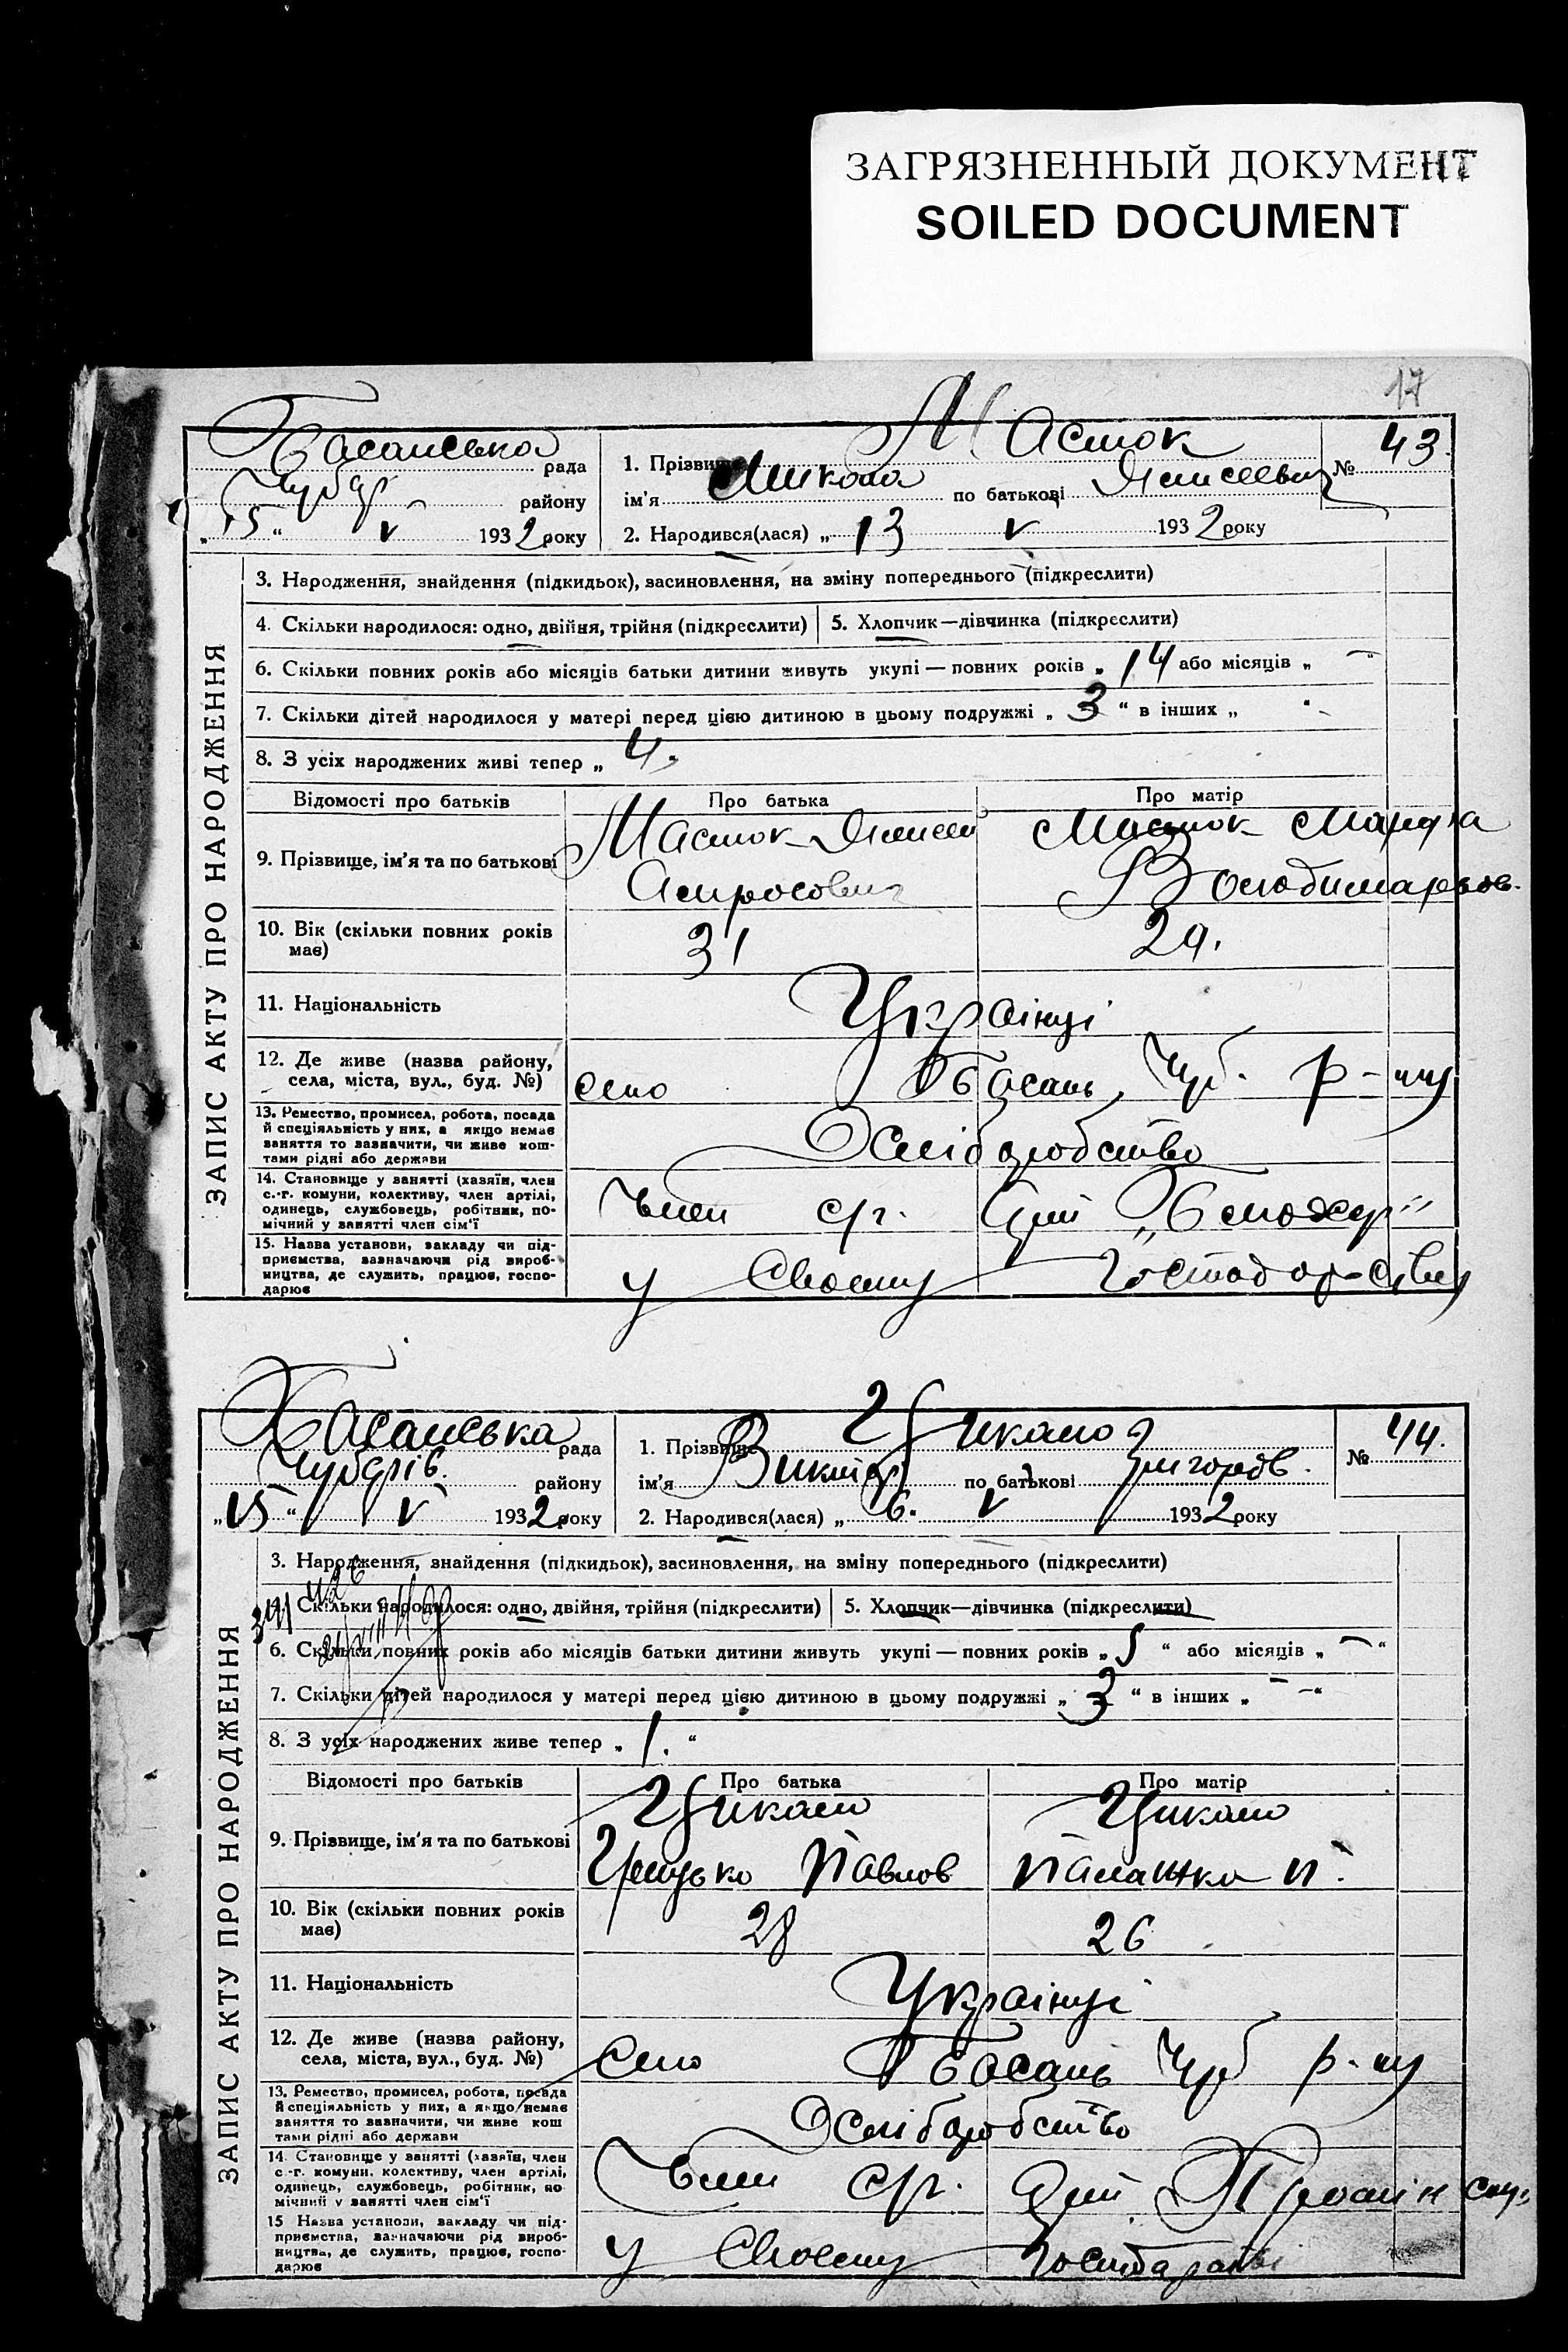 ЗАГРЯЗНЕННЫЙ ДОКУМЕНТ
SOILED DOCUMENT
17
Басанська рада
Чубар района
"15" V 1932 року
1. Прізвище Мастюк
ім'я Микола по батькові
№ 43.
2. Народився(лася) „ 13 V 1932 року
ЗАПИС АКТУ ПРО НАРОДЖЕННЯ
3. Народження, знайдення (підкидьок), засиновлення, на зміну попереднього (підкреслити)
4. Скільки народилося: одно, двійня, трійня (підкреслити)
5. Хлопчик—дівчинка (підкреслити)
6. Скільки повних років або місяців батьки дитини живуть укупі — повних років „ 14 або місяців „ — "
7. Скільки дітей народилося у матері перед цією дитиною в цьому подружжі „ 3 " в інших „
8. З усіх народжених живі тепер „ 4.
Відомості про батьків
Про батька
Про матір
9. Прізвище, ім'я та по батькові
Мастюк
Мастюк
10. Вік (скільки повних років має)
31
29.
11. Національність
Українці
12. Де живе (назва району, села, міста, вул., буд. №)
село Басань, Чуб. р-ну
13. Ремество, промисел, робота, посада
й спеціяльність у них, а якщо немає
заняття то зазначити, чи живе кош-
тами рідні або держави
14. Становище у занятті (хазяїн, член
с.-г. комуни, колективу, член артілі,
одинець, службовець, робітник, по-
мічний у занятті член сім'ї
член с/г.
15. Назва установи, закладу чи під-
приємства, зазначаючи рід вироб-
ництва, де служить, працює, госпо-
дарює
у своєму господарстві
Басанська рада
Чубарів. району
„15" V 1932 року
1. Прізвище Цикало
ім'я Виктор по батькові Григоров.
№ 44.
2. Народився(лася) „ 6. V 1932 року
ЗАПИС АКТУ ПРО НАРОДЖЕННЯ
3. Народження, знайдення (підкидьок), засиновлення, на зміну попереднього (підкреслити)
4. Скільки народилося: одно, двійня, трійня (підкреслити)
5. Хлопчик—дівчинка (підкреслити)
6. Скільки повних років або місяців батьки дитини живуть укупі — повних років „ 5 " або місяців „ — "
7. Скільки дітей народилося у матері перед цією дитиною в цьому подружжі „ 3 " в інших „ — "
8. З усіх народжених живе тепер „ 1. "
Відомості про батьків
Про батька
Про матір
9. Прізвище, ім'я та по батькові
Цикало
Грицько Павлов
Цикало
Палашка П.
10. Вік (скільки повних років має)
28
26
11. Національність
Українці
12. Де живе (назва району, села, міста, вул., буд. №)
Село Басань Чуб р-ну
13. Ремество, промисел, робота, посада
й спеціяльність у них, а якщо немає
заняття то зазначити, чи живе кош
тами рідні або держави
14. Становище у занятті (хазяїн, член
с.-г. комуни, колективу, член артілі,
одинець, службовець, робітник, по
мічний у занятті член сім'ї
член с/г.
15 Назва установи, закладу чи під-
приємства, зазначаючи рід вироб-
ництва, де служить, працює, госпо-
дарює
у своєму господарстві